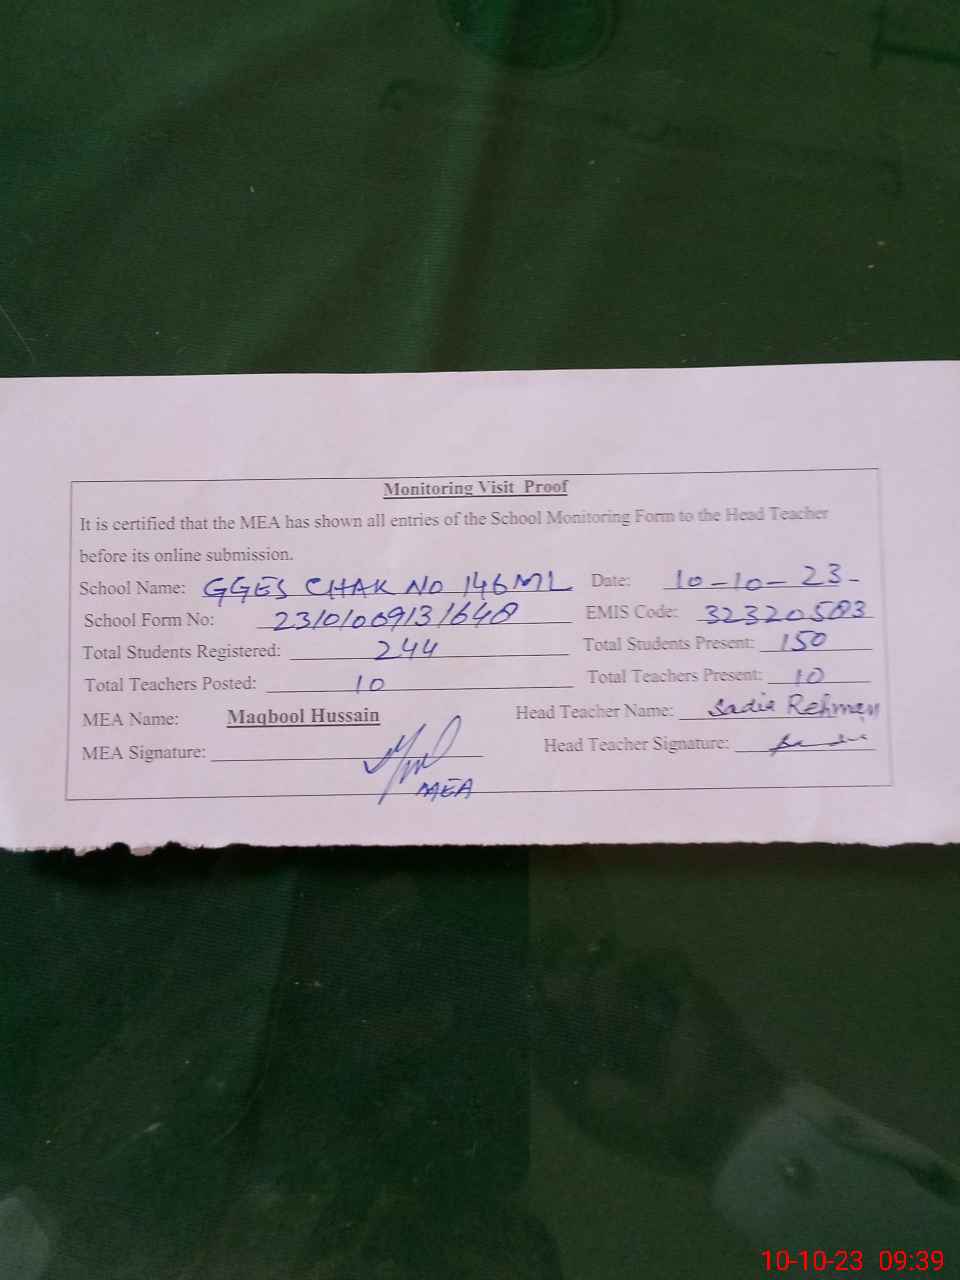 Monitoring Visit Proof
It is certified that the MEA has shown all entries of the School Monitoring Form to the Head Teacher
before its online submission.
School Name: GGES CHAK NO 146 ML Date: 10-10-23-
School Form No: 23101009131648 EMIS Code: 32320503
Total Students Registered: 244 Total Students Present: 150
Total Teachers Posted: 10 Total Teachers Present: 10
MEA Name: Maqbool Hussain Head Teacher Name: Sadia Rehman
MEA Signature: Head Teacher Signature:
MEA
10-10-23 09:39